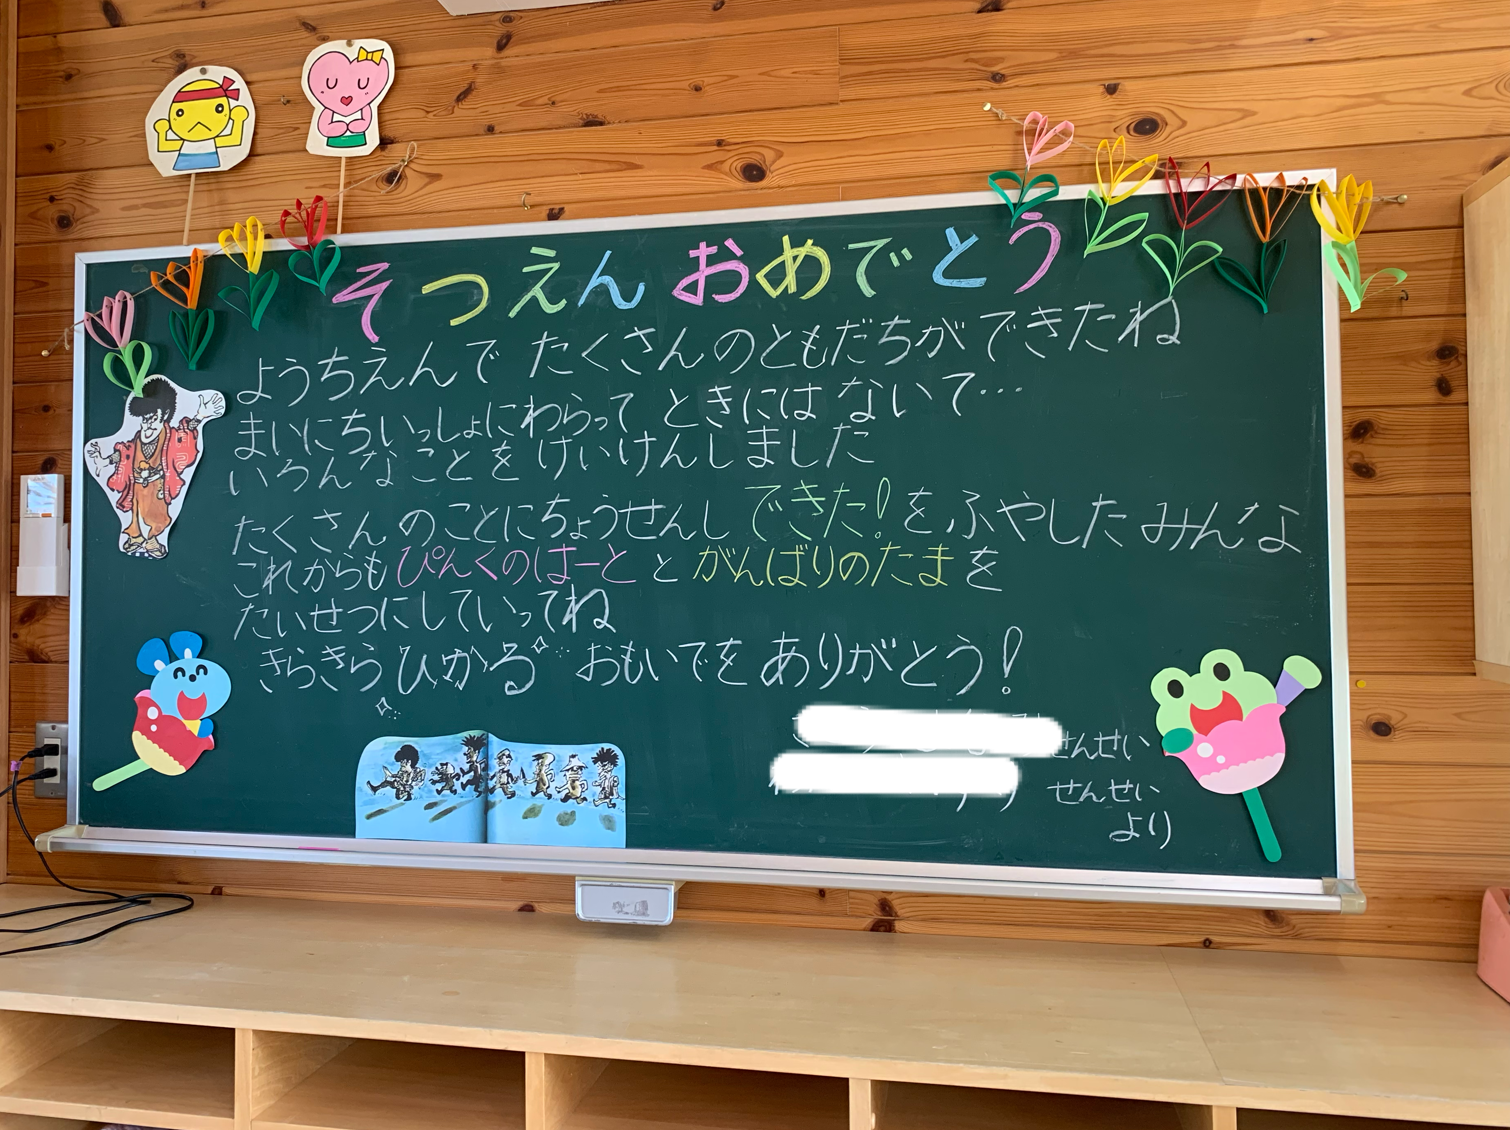 そつえんおめでとう
ようちえんで たくさんのともだちができたね
まいにちいっしょにわらって ときには ないて…
いろんなことを けいけんしました
たくさんのことにちょうせんし できた！をふやしたみんな
これからも ぴんくのはーと と がんばりのたま を
たいせつにしていってね
きらきら ひかる おもいでを ありがとう！
せんせい
せんせい
より